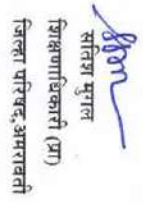 सतिश मुगल
शिक्षणाधिकारी (प्रा)
जिल्हा परिषद,अमरावती